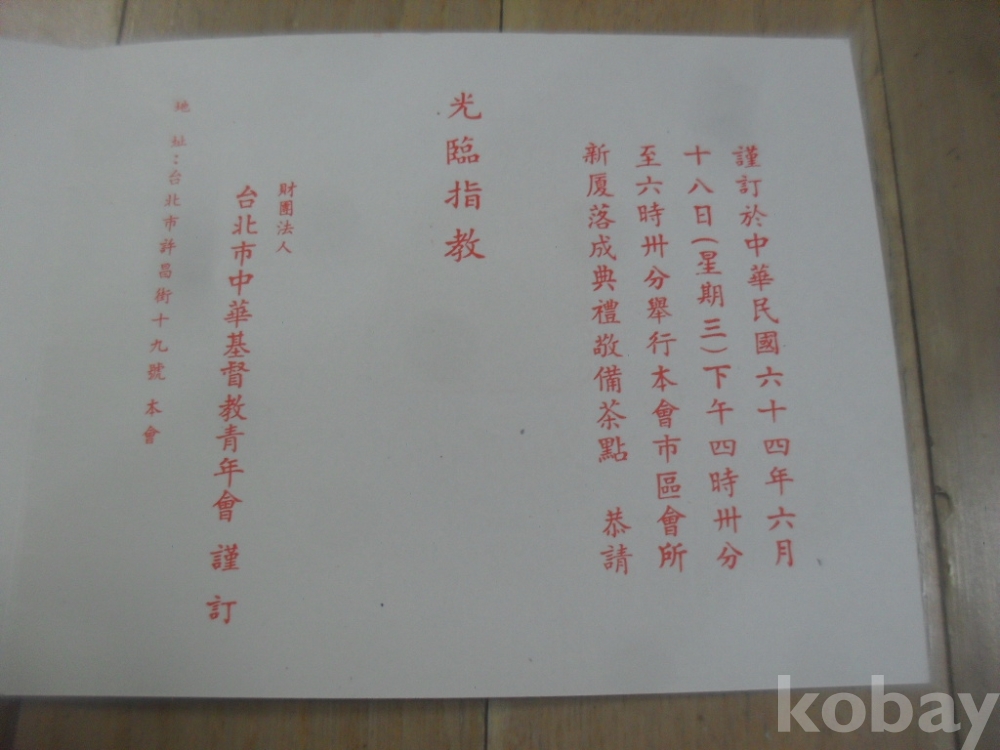 謹訂於中華民國六十四年六月
十八日(星期三)下午四時卅分
至六時卅分舉行本會市區會所
新厦落成典禮敬備茶點 恭請
光臨指教
財團法人
台北市中華基督教青年會 謹訂
地址:台北市許昌街十九號 本會
kobay